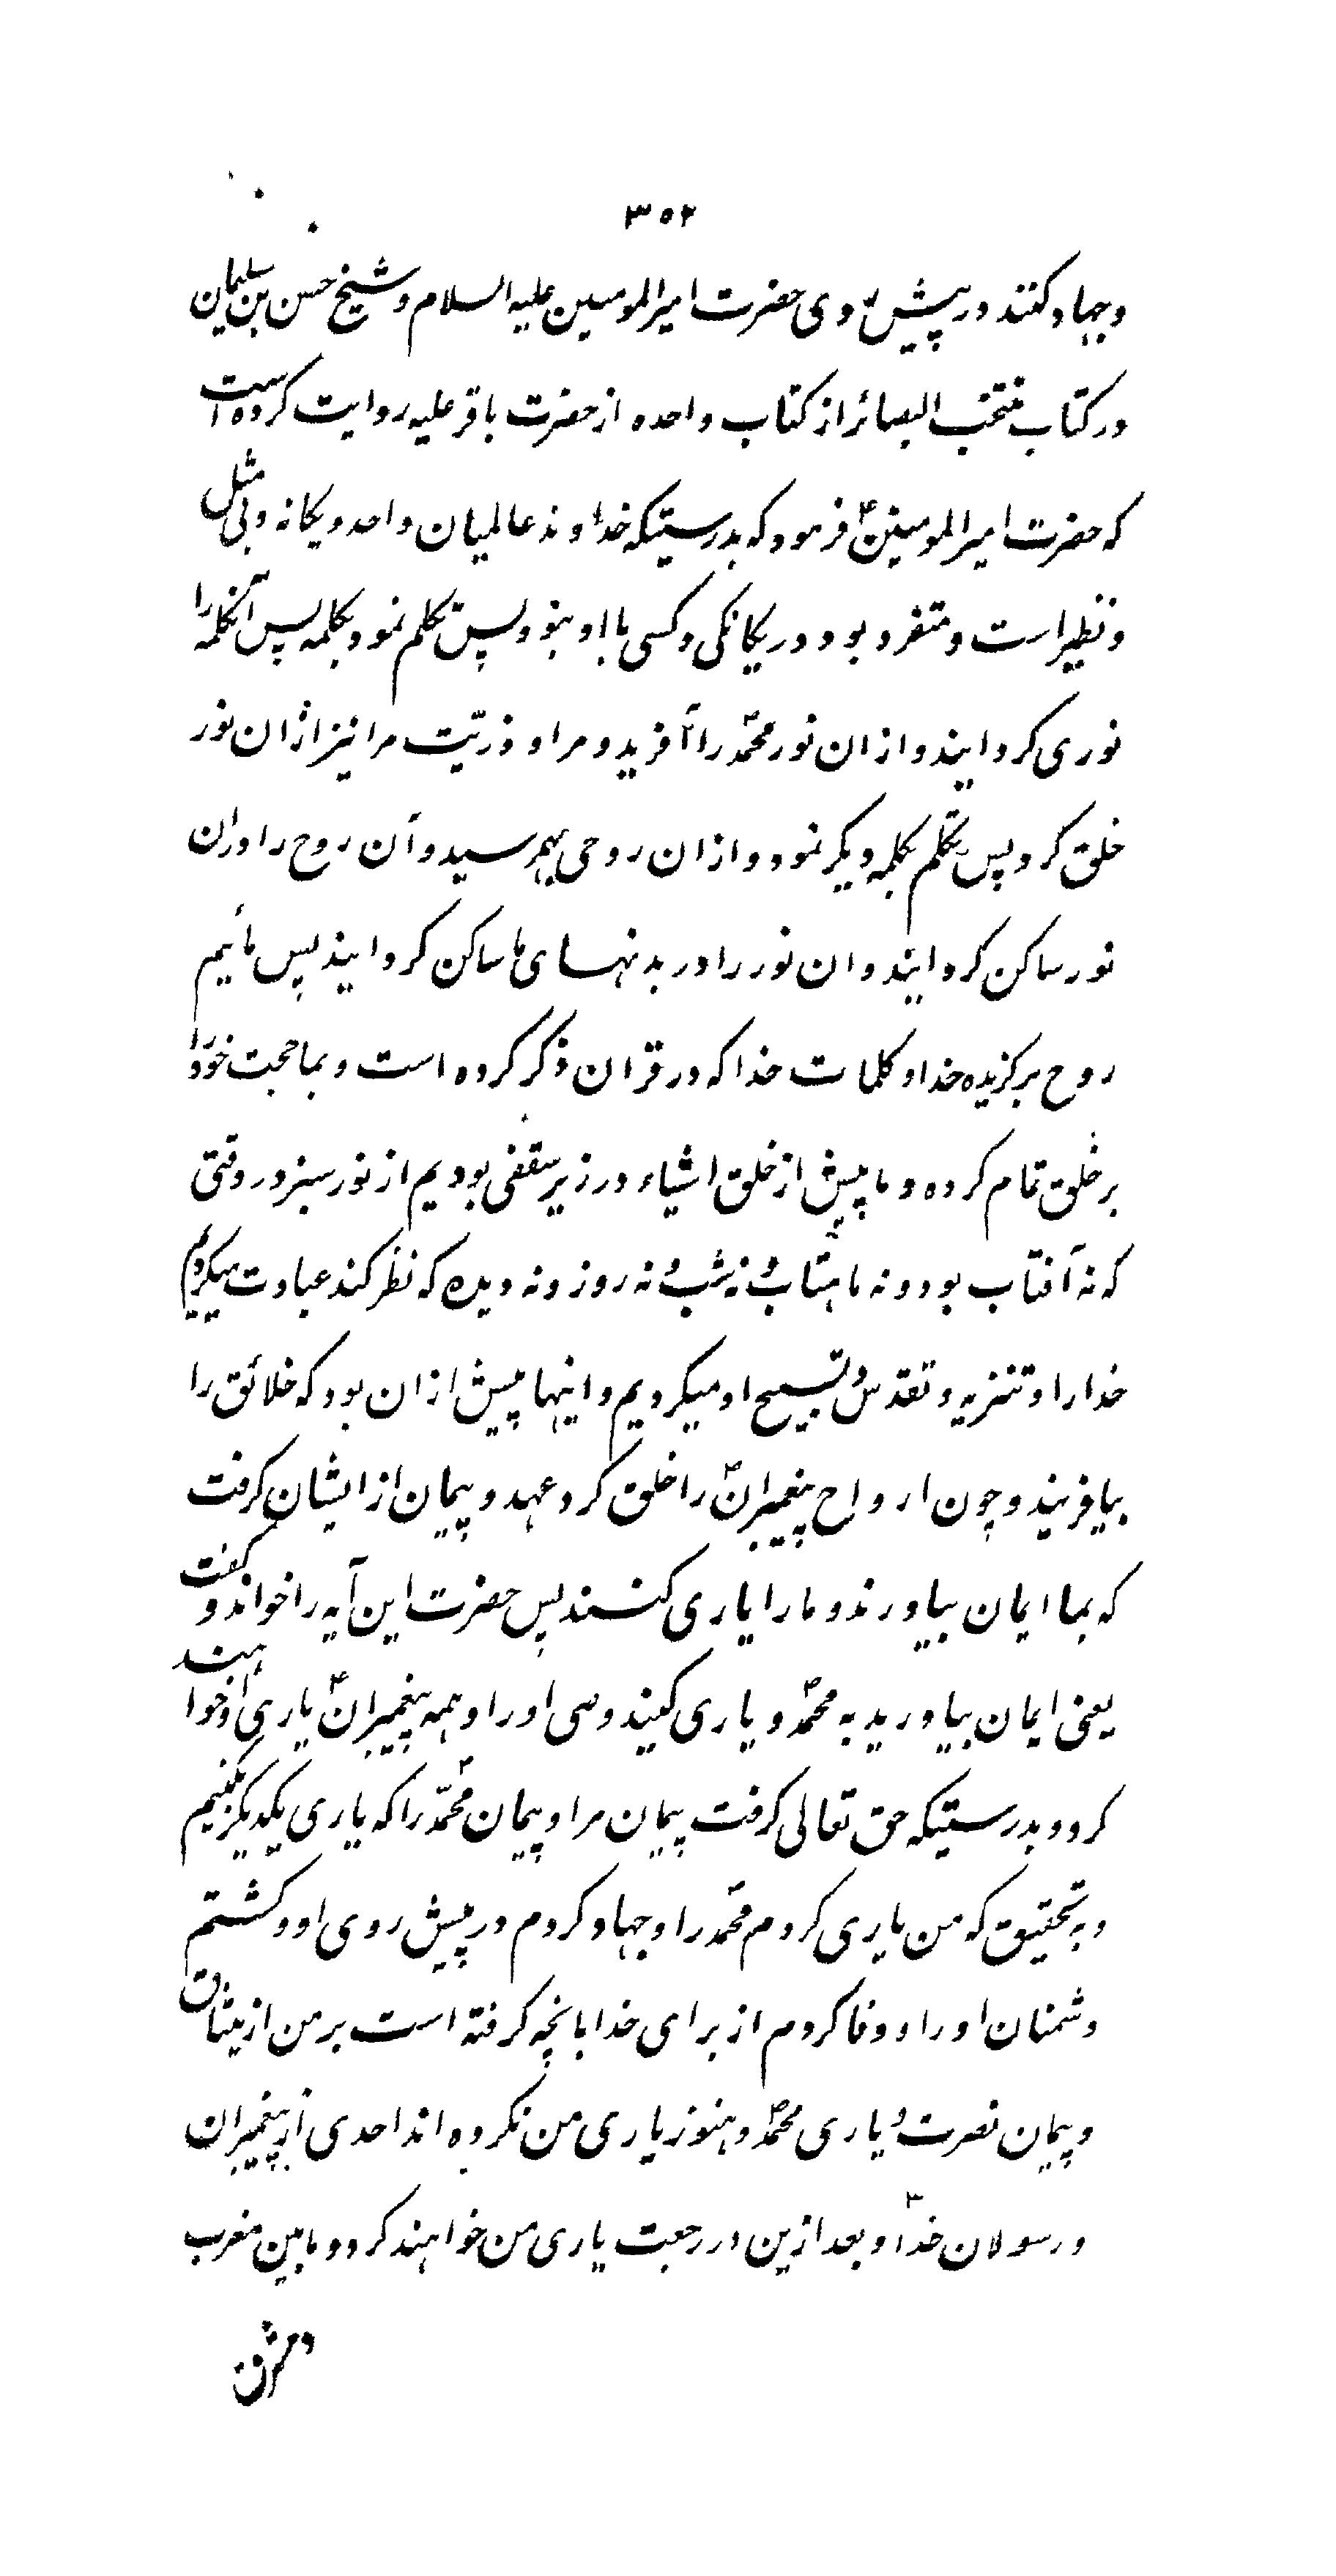 ۳۵۲
و جهاد کنند در پیش روی حضرت امیرالمومنین علیه السلام و شیخ حسن بن سلیمان
در کتاب منتخب البصائر از کتاب واحده از حضرت باقر علیه روایت کرده است
که حضرت امیرالمومنینؑ فرمود که بدرستیکه خداوند عالمیان واحد و یکانه و بی مثل
و نظیر است و متفرد بود در یکانکی و کسی با او نبود پس تکلم نمود بکلمه پس آنکلمه را
نوری کردانید و از ان نور محمدؐ را آفرید و مرا و ذریّت مرا نیز از ان نور
خلق کرد پس تکلم بکلمه دیکر نمود و از ان روحی بهمرسید و آن روح را در ان
نور ساکن کردانید و ان نور را در بدنهای ما ساکن کردانید پس مائیم
روح برکزیده خدا و کلمات خدا که در قران ذکر کرده است و بما حجت خود را
بر خلق تمام کرده و ما پیش از خلق اشیاء در زیر سقفی بودیم از نور سبز در وقتی
که نه آفتاب بود و نه ماهتاب و نه شب و نه روز و نه دیده که نظر کند عبادت میکردیم
خدا را و تنزیه و تقدس و تسبیح او میکردیم و اینها پیش از ان بود که خلائق را
بیافریند و چون ارواح پیغمبرانؑ را خلق کرد عهد و پیمان از ایشان کرفت
که بما ایمان بیاورند و ما را یاری کنند پس حضرت این آیه را خواند و کفت
یعنی ایمان بیاورید به محمدؐ و یاری کنید وصی او را و همه پیغمبرانؑ یاری او خواهند
کرد و بدرستیکه حق تعالی کرفت پیمان مرا و پیمان محمّدؐ را که یاری یکدیکر بکنیم
و به تحقیق که من یاری کردم محمّدؐ را و جهاد کردم در پیش روی او و کشتم
دشمنان او را و وفا کردم از برای خدا بانچه کرفته است بر من از میثاق
و پیمان نصرت و یاری محمدؐ و هنوز یاری من نکرده اند احدی از پیغمبران
و رسولان خدا و بعد ازین در رجعت یاری من خواهند کرد و ما بین مغرب
و مشرق